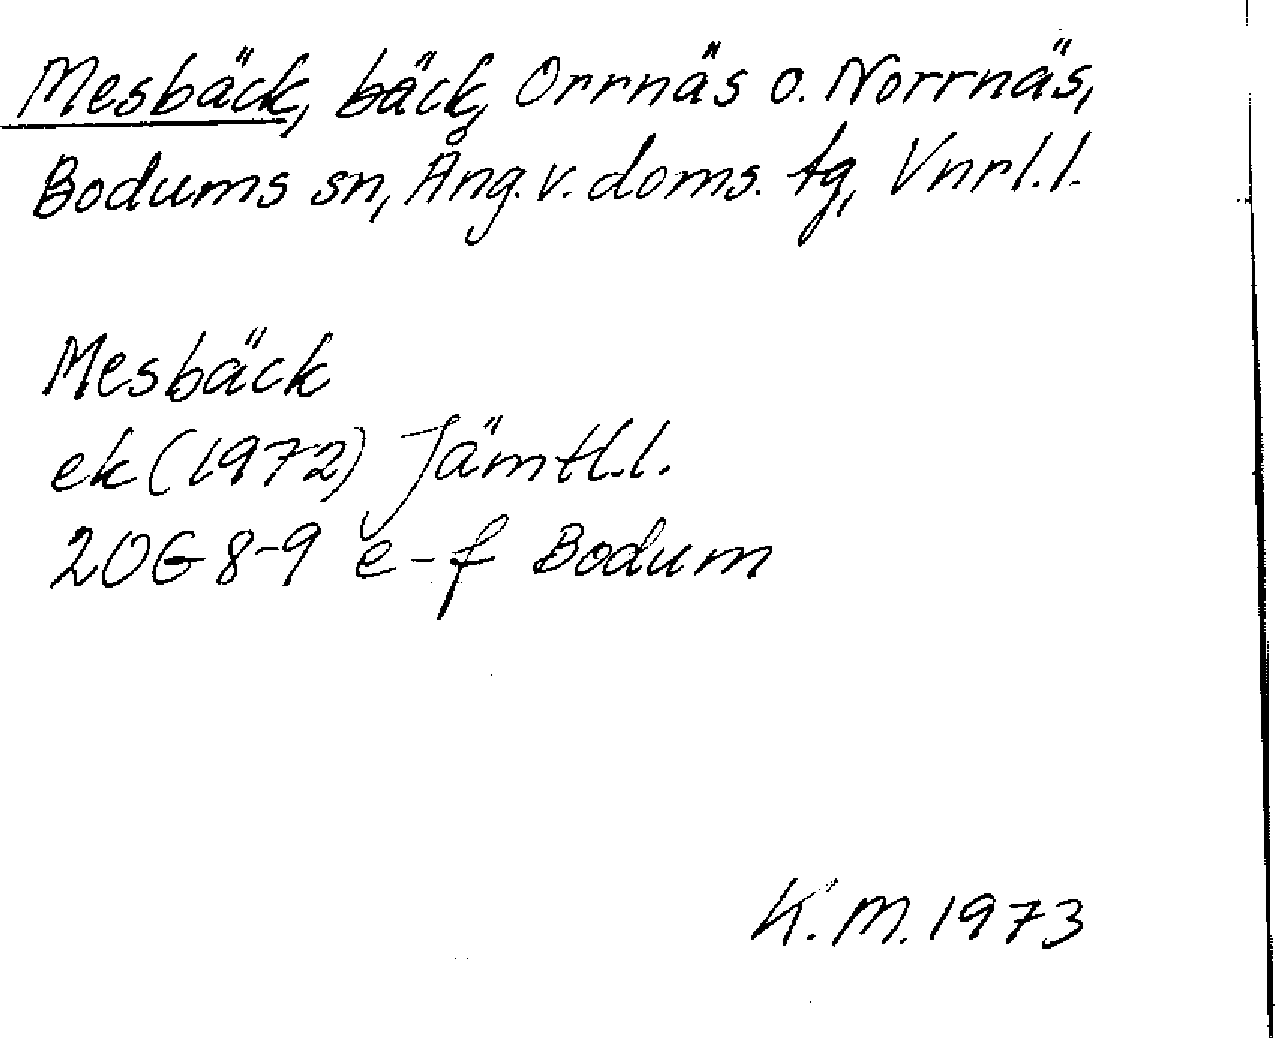 Mesbäck, bäck, Orrnäs o. Norrnäs,
Bodums sn, Ång.v.doms. tg, Vnrl.l.
Mesbäck
ek (1972) Jämtl.l.
20G 8-9 e-f Bodum
K.M. 1973